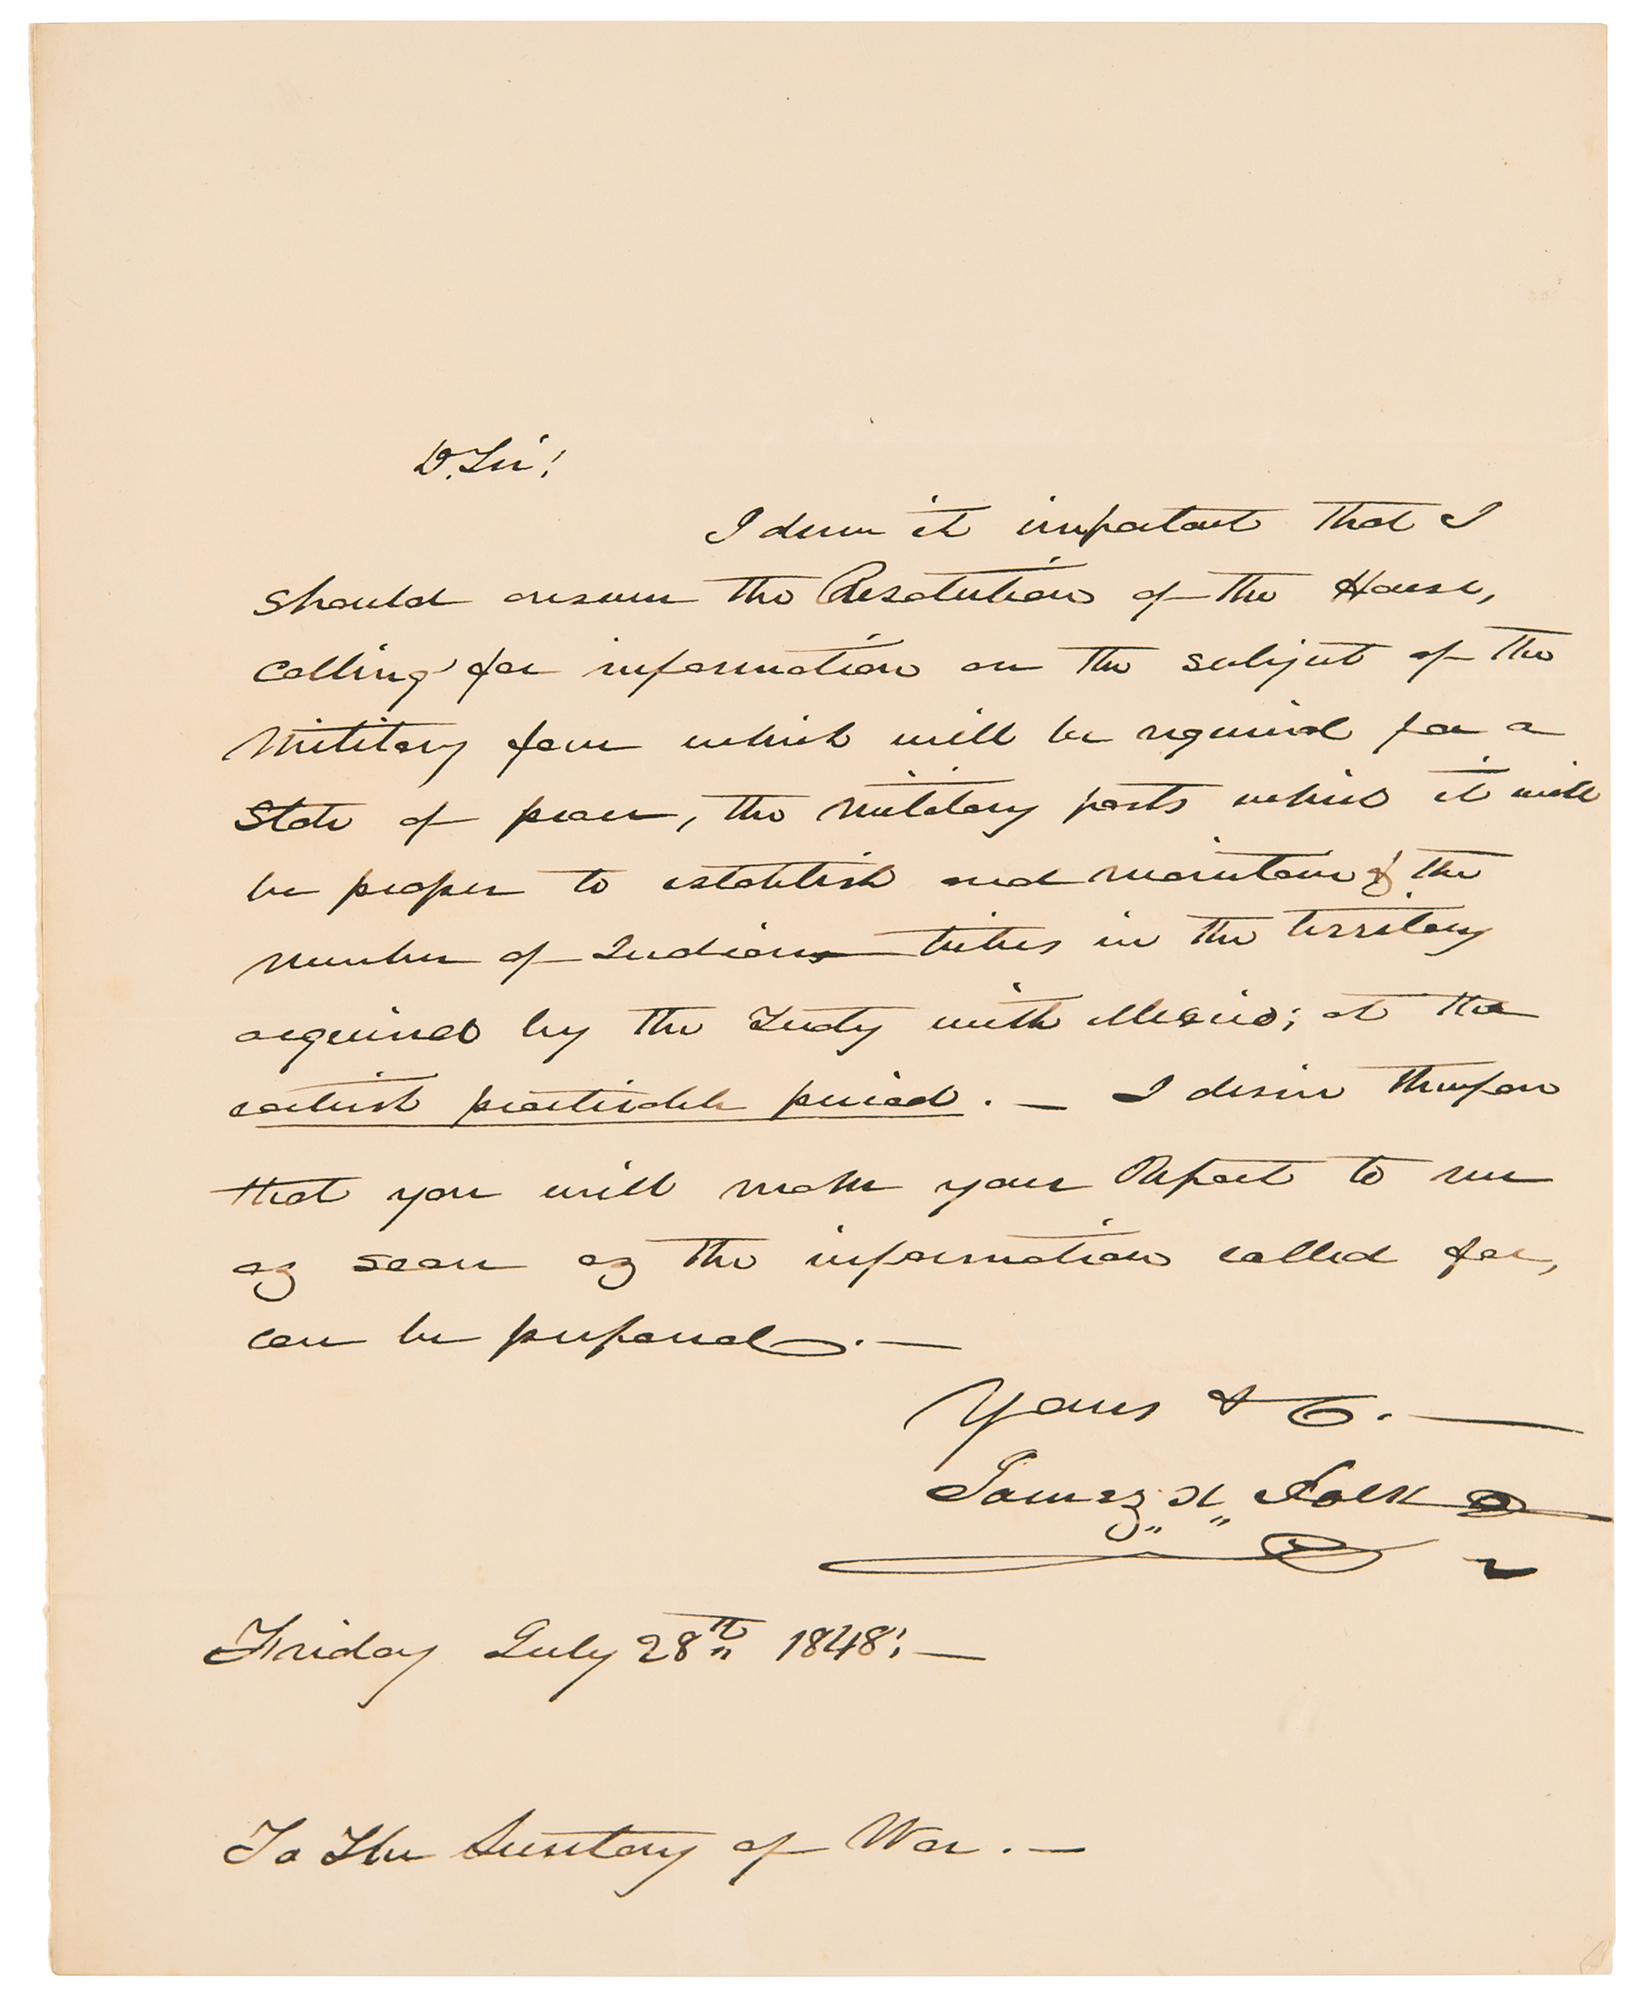 D. Sir!
I deem it important that I
should answer the Resolution of the House,
calling for information on the subject of the
Military force which will be required for a
State of peace, the Military posts which it will
be proper to establish and maintain & the
number of Indian tribes in the territory
acquired by the Treaty with Mexico; at the
earliest practicable period. — I desire therefore
that you will make your Report to me
as soon as the information called for,
can be prepared. —
Yours &C. —
James K Polk
Friday July 28th 1848: —
To The Secretary of War. —